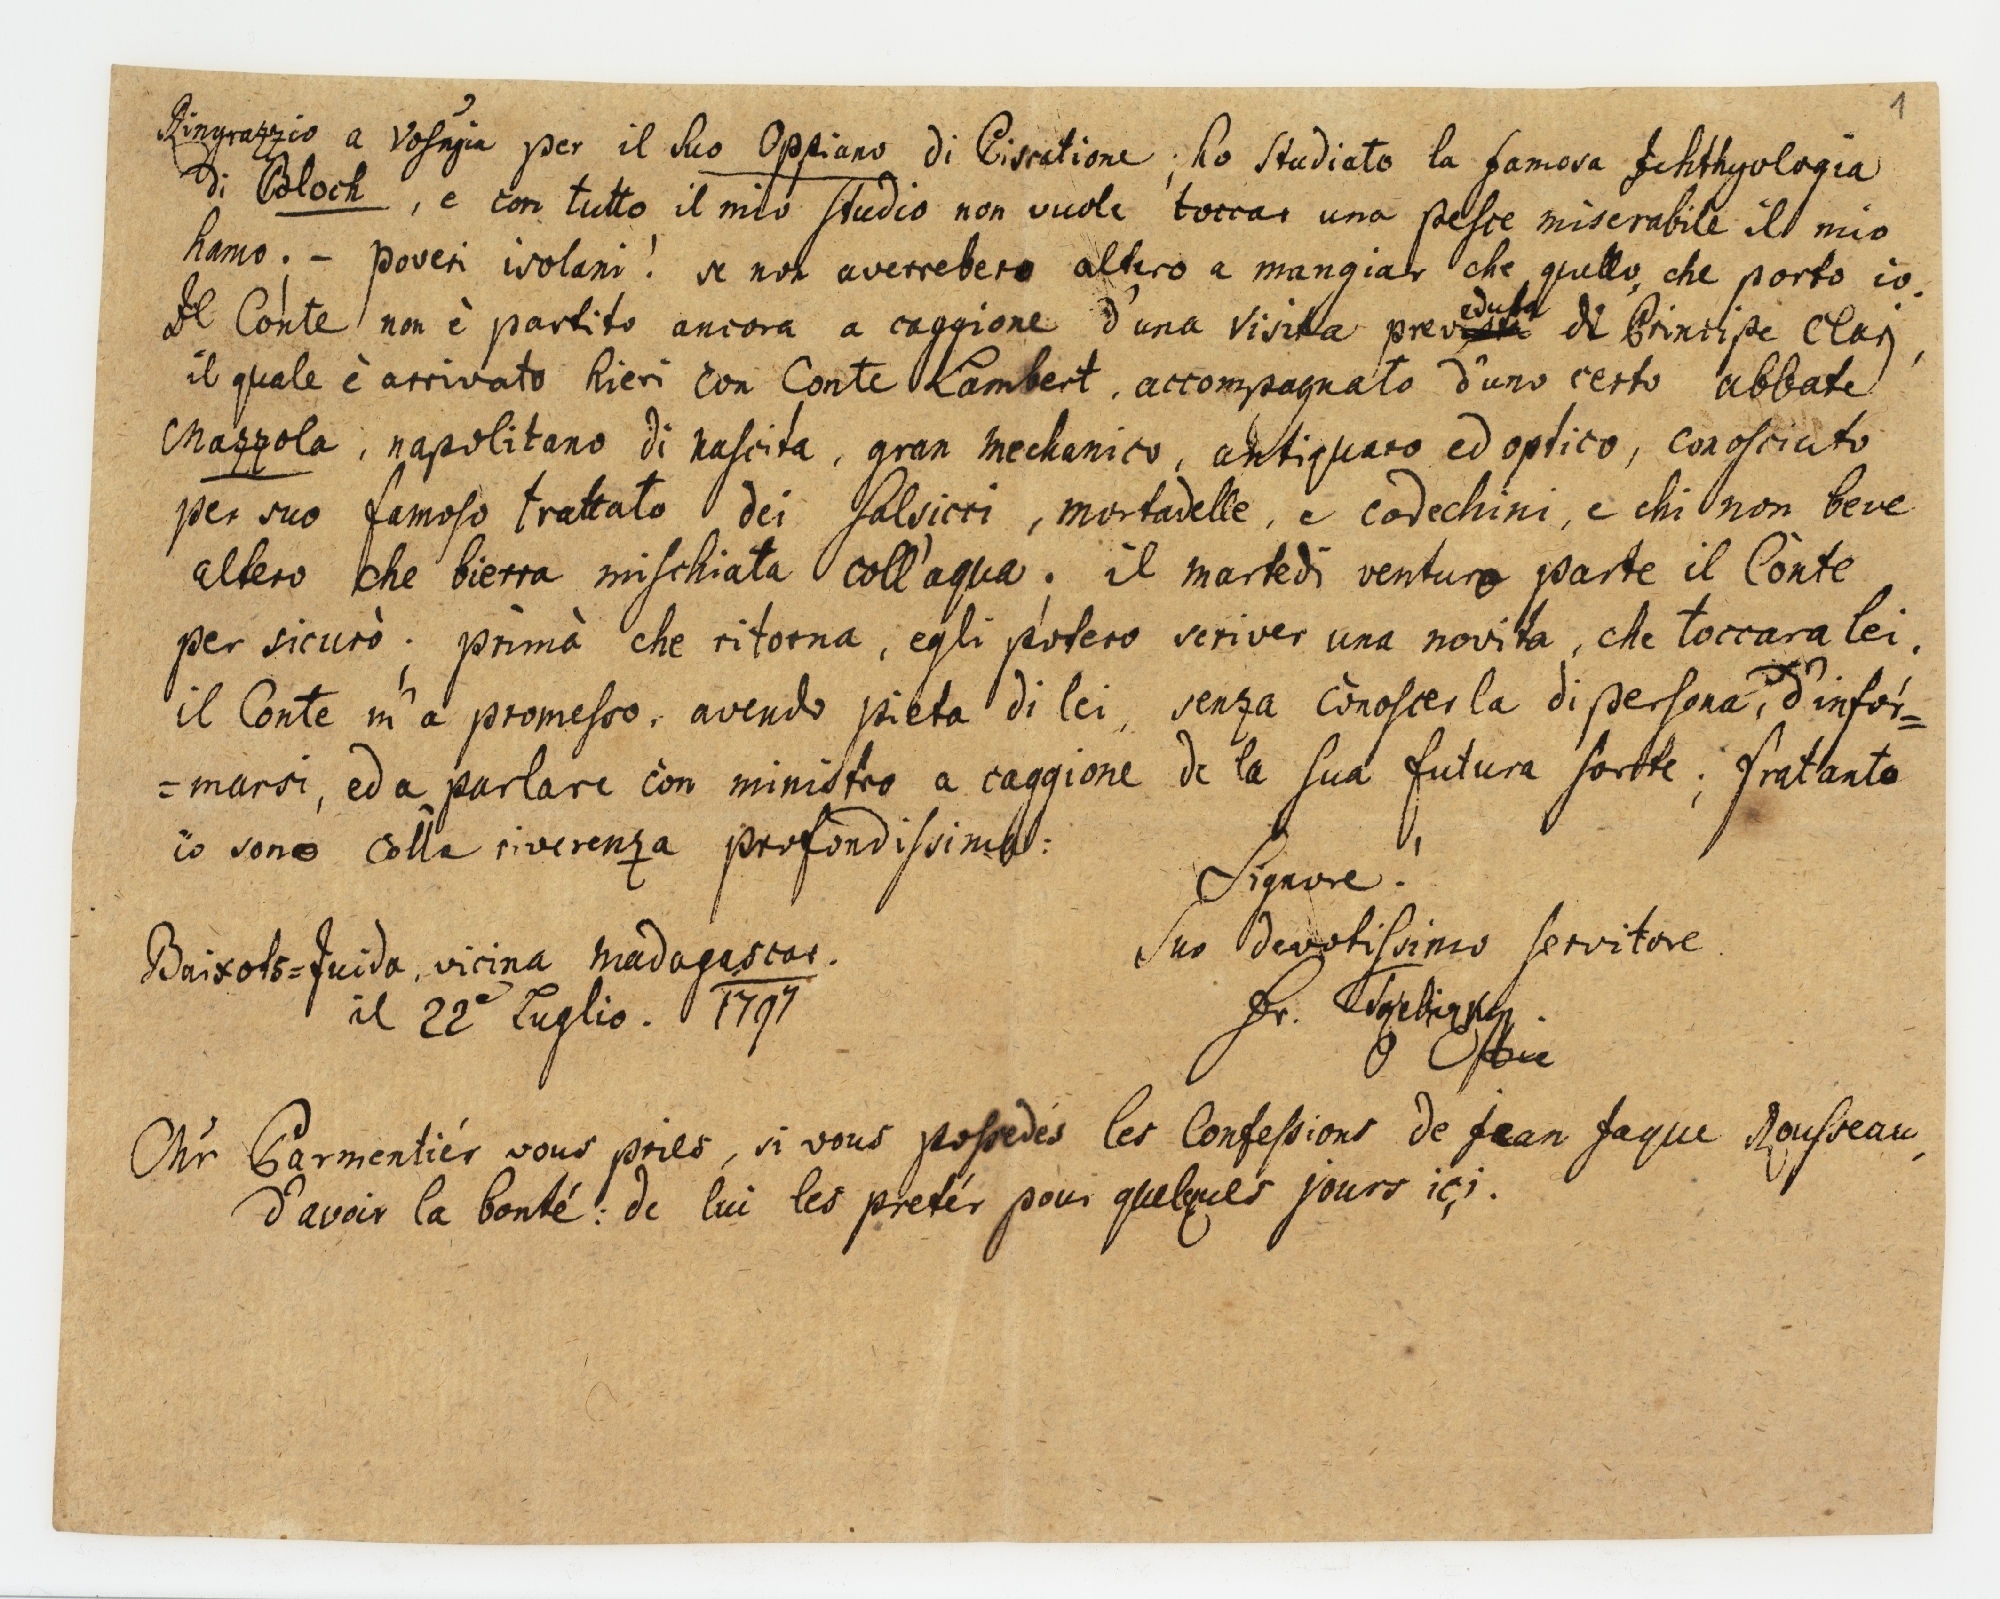 1
Ringrazzio a Vosignia per il suo Oppiano di Piscatione, ho studiato la famosa Ichthyologia
di Bloch, e con tutto il mio studio non vuole toccar una pesce miserabile il mio
hamo. – poveri isolani! se non averrebero altero a mangiar che quello, che porto io.
Il Conte non è partito ancora a caggione d'una visita preveduta di Principe Clarj,
il quale è arrivato hieri con Conte Lambert, accompagnato d'uno certo abbate
Mazzola, napolitano di nascita, gran mechanico, antiquaro ed optico, conosciuto
per suo famoso trattato dei salsicci, mortadelle, e codechini, e chi non beve
altero che bierra mischiata coll'aqua. il martedi venturo parte il Conte
per sicurò; primà che ritorna, egli potero scriver una novita, che toccara lei.
il Conte m'a promesso, avendo pieta di lei, senza conoscerla di persona, d'infor=
=marsi, ed a parlare con ministro a caggione de la sua futura sorte; fratanto
io sono colla riverenza profondissima:
Signore!
Suo devotissimo servitore
Baixots=Juida, vicina madagascar.
il 22e Luglio. 1797
Fr.
Mr Parmentiér vous pries, si vous possedés les Confessions de Jean Jaque Rousseau,
d'avoir la bonté: de lui les pretér pour quelques jours içi.